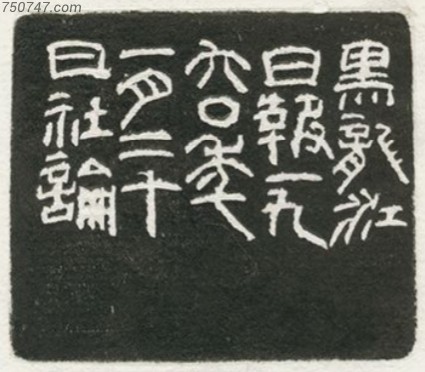 750747.com
黑龍江
日報一九
六〇年
一月二十
日社論